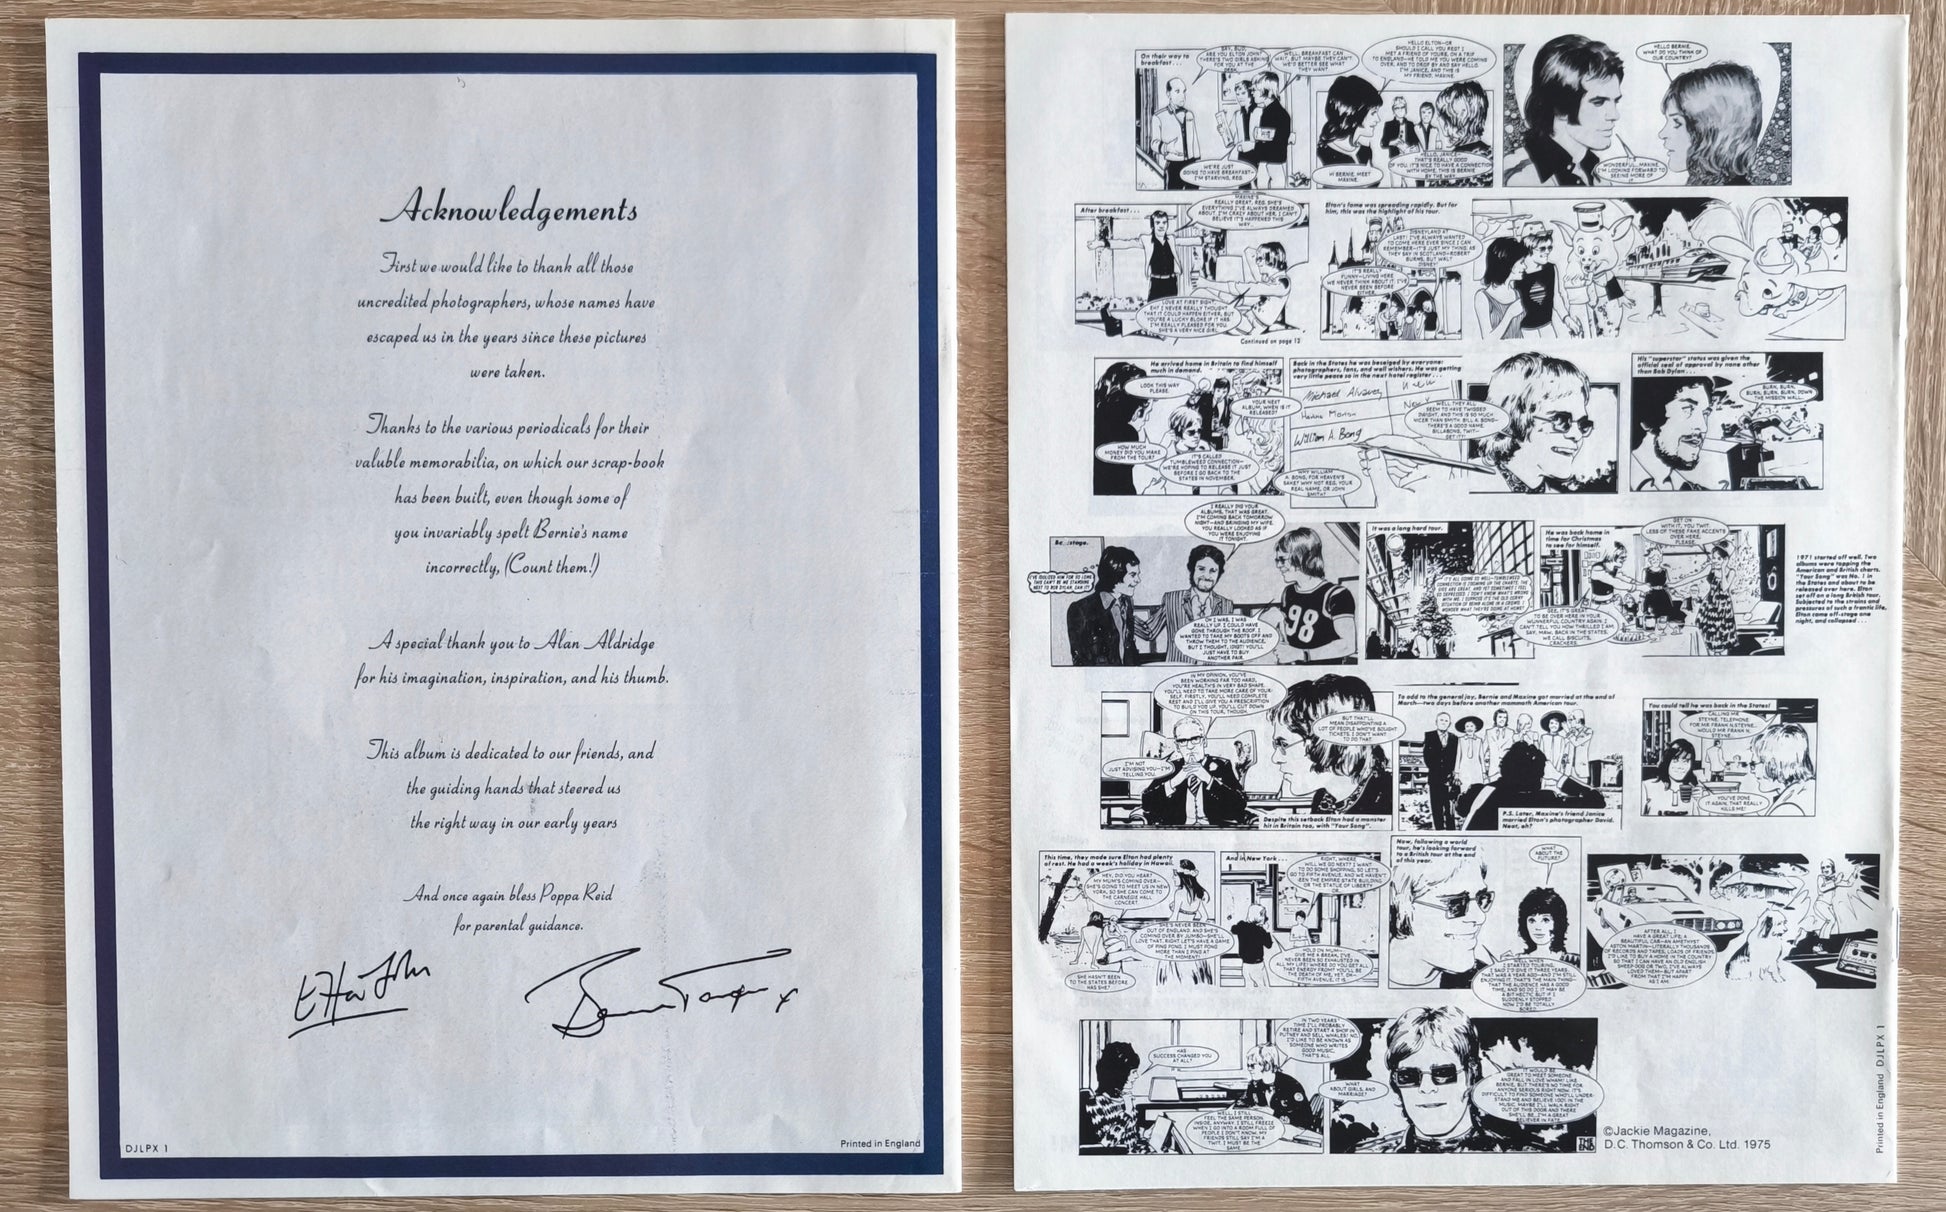 Acknowledgements
First we would like to thank all those
uncredited photographers, whose names have
escaped us in the years since these pictures
were taken.
Thanks to the various periodicals for their
valuble memorabilia, on which our scrap-book
has been built, even though some of
you invariably spelt Bernie's name
incorrectly, (Count them!)
A special thank you to Alan Aldridge
for his imagination, inspiration, and his thumb.
This album is dedicated to our friends, and
the guiding hands that steered us
the right way in our early years
And once again bless Poppa Reid
for parental guidance.
Elton John
Bernie Taupin x
DJLPX 1
Printed in England
On their way to
breakfast...
SAY, BUD,
ARE YOU ELTON JOHN?
THERE'S TWO GIRLS ASKING
FOR YOU AT THE
DESK.
WELL, BREAKFAST CAN
WAIT, BUT MAYBE THEY CAN'T.
WE'D BETTER SEE WHAT
THEY WANT
WE'RE JUST
GOING TO HAVE BREAKFAST—
I'M STARVING, REG.
HELLO ELTON—OR
SHOULD I CALL YOU REG? I
MET A FRIEND OF YOURS, ON A TRIP
TO ENGLAND—HE TOLD ME YOU WERE COMING
OVER, AND TO DROP BY AND SAY HELLO.
I'M JANICE, AND THIS IS
MY FRIEND, MAXINE.
HI BERNIE, MEET
MAXINE.
HELLO, JANICE—
THAT'S REALLY GOOD
OF YOU. IT'S NICE TO HAVE A CONNECTION
WITH HOME. THIS IS BERNIE
BY THE WAY.
HELLO BERNIE.
WHAT DO YOU THINK OF
OUR COUNTRY?
WONDERFUL, MAXINE
I'M LOOKING FORWARD TO
SEEING MORE OF
IT.
After breakfast...
MAXINE'S
REALLY GREAT, REG. SHE'S
EVERYTHING I'VE ALWAYS DREAMED
ABOUT. I'M CRAZY ABOUT HER. I CAN'T
BELIEVE IT'S HAPPENED THIS
WAY.
LOVE AT FIRST SIGHT,
EH? I NEVER REALLY THOUGHT
THAT IT COULD HAPPEN EITHER, BUT
YOU'RE A LUCKY BLOKE IF IT HAS.
I'M REALLY PLEASED FOR YOU.
SHE'S A VERY NICE GIRL.
Continued on page 13
Elton's fame was spreading rapidly. But for
him, this was the highlight of his tour.
DISNEYLAND AT
LAST! I'VE ALWAYS WANTED
TO COME HERE EVER SINCE I CAN
REMEMBER—IT'S JUST MY THING. AS
THEY SAY IN SCOTLAND—ROBERT
BURNS, BUT WALT
DISNEY!
IT'S REALLY
FUNNY—LIVING HERE
WE NEVER THINK ABOUT IT. I'VE
NEVER BEEN BEFORE
EITHER.
He arrived home in Britain to find himself
much in demand.
LOOK THIS WAY
PLEASE.
YOUR NEXT
ALBUM, WHEN IS IT
RELEASED?
HOW MUCH
MONEY DID YOU MAKE
FROM THE TOUR?
IT'S CALLED
TUMBLEWEED CONNECTION—
WE'RE HOPING TO RELEASE IT JUST
BEFORE I GO BACK TO THE
STATES IN NOVEMBER.
Back in the States he was beseiged by everyone:
photographers, fans, and well wishers. He was getting
very little peace so in the next hotel register...
Michael Alvarez
New
William A. Bong
WHY WILLIAM
A. BONG, FOR HEAVEN'S
SAKE? WHY NOT REG, YOUR
REAL NAME, OR JOHN
SMITH?
WELL THEY ALL
SEEM TO HAVE TWIGGED
DWIGHT, AND THIS IS SO MUCH
NICER THAN SMITH. BILL A. BONG—
THERE'S A GOOD NAME.
BILLABONG, TWIT—
GET IT?
His "superstar" status was given the
official seal of approval by none other
than Bob Dylan...
BURN, BURN,
BURN, BURN, BURN, DOWN
THE MISSION WALL..
I REALLY DIG YOUR
ALBUMS, THAT WAS GREAT.
I'M COMING BACK TOMORROW
NIGHT—AND BRINGING MY WIFE.
YOU REALLY LOOKED AS IF
YOU WERE ENJOYING
IT TONIGHT.
I'VE IDOLIZED HIM FOR SO LONG
THIS CAN'T BE ME STANDING
NEXT TO BOB DYLAN. CAN IT?
OH I WAS, I WAS
REALLY UP. I COULD HAVE
GONE THROUGH THE ROOF. I
WANTED TO TAKE MY BOOTS OFF AND
THROW THEM TO THE AUDIENCE,
BUT I THOUGHT, IDIOT! YOU'LL
JUST HAVE TO BUY
ANOTHER PAIR.
98
It was a long hard tour.
IT'S ALL GOING SO WELL—TUMBLEWEED
CONNECTION IS ZOOMING UP THE CHARTS, THE
GIGS ARE GREAT, AND YET SOMETIMES I FEEL
SO DEPRESSED. I DON'T KNOW WHAT'S WRONG
WITH ME. I SUPPOSE IT'S THE OLD CORNY
SITUATION OF BEING ALONE IN A CROWD. I
WONDER WHAT THEY'RE DOING AT HOME?
He was back home in
time for Christmas
to see for himself.
GET ON
WITH IT, YOU TWIT.
LESS OF THESE FAKE ACCENTS
OVER HERE,
PLEASE.
GEE, IT'S GREAT
TO BE OVER HERE IN YOUR
WUNNERFUL COUNTRY AGAIN. I
CAN'T TELL YOU HOW THRILLED I AM.
SAY, MAW, BACK IN THE STATES,
WE CALL BISCUITS,
CRACKERS.
1971 started off well. Two
albums were topping the
American and British charts.
"Your Song" was No. 1 in
the States and about to be
released over here. Elton
set off on a long British tour.
Subjected to the strains and
pressures of such a frantic life,
Elton came off-stage one
night, and collapsed...
IN MY OPINION, YOU'VE
BEEN WORKING FAR TOO HARD,
YOU'RE HEALTH'S IN VERY BAD SHAPE.
YOU'LL NEED TO TAKE MORE CARE OF YOUR-
SELF. FIRSTLY, YOU'LL NEED COMPLETE
REST AND I'LL GIVE YOU A PRESCRIPTION
TO BUILD YOU UP. YOU'LL CUT DOWN
ON THIS TOUR, THOUGH.
BUT THAT'LL
MEAN DISAPPOINTING A
LOT OF PEOPLE WHO'VE BOUGHT
TICKETS. I DON'T WANT
TO DO THAT.
I'M NOT
JUST ADVISING YOU—I'M
TELLING YOU.
Despite this setback Elton had a monster
hit in Britain too, with "Your Song".
To add to the general joy, Bernie and Maxine got married at the end of
March—two days before another mammoth American tour.
P.S. Later, Maxine's friend Janice
married Elton's photographer David.
Neat, eh?
You could tell he was back in the States!
CALLING MR
STEYNE. TELEPHONE
FOR MR FRANK N.STEYNE..
WOULD MR FRANK N.
STEYNE..
YOU'VE DONE
IT AGAIN, THAT REALLY
KILLS ME!
This time, they made sure Elton had plenty
of rest. He had a week's holiday in Hawaii.
HEY, DID YOU HEAR?
MY MUM'S COMING OVER—
SHE'S GOING TO MEET US IN NEW
YORK, SO SHE CAN COME TO
THE CARNEGIE HALL
CONCERT.
SHE HASN'T BEEN
TO THE STATES BEFORE
HAS SHE?
SHE'S NEVER BEEN
OUT OF ENGLAND. AND SHE'S
COMING OVER BY JUMBO—SHE'LL
LOVE THAT. RIGHT LET'S HAVE A GAME
OF PING PONG. I MUST PONG
MORE THAN I PING AT
THE MOMENT!
And in New York...
RIGHT, WHERE
WILL WE GO NEXT? I WANT
TO DO SOME SHOPPING, SO LET'S
GO TO FIFTH AVENUE. AND WE HAVEN'T
SEEN THE EMPIRE STATE BUILDING
OR THE STATUE OF LIBERTY
OR..
HOLD ON MUM—
GIVE ME A BREAK, I'VE
NEVER BEEN SO EXHAUSTED IN
ALL MY LIFE! WHERE DO YOU GET ALL
THAT ENERGY FROM? YOU'LL BE
THE DEATH OF ME, YET. OH—
FIFTH AVENUE, IT IS.
Now, following a world
tour, he's looking forward
to a British tour at the end
of this year.
WHAT
ABOUT THE
FUTURE?
WELL, WHEN
I STARTED TOURING,
I SAID I'D GIVE IT THREE YEARS.
THAT WAS A YEAR AGO—AND I'M STILL
ENJOYING IT. THAT'S THE MAIN THING—
THAT THE AUDIENCE HAS A GOOD
TIME, AND SO DO I. IT MAY BE
A BIT HECTIC BUT IF I
SUDDENLY STOPPED
NOW I'D BE TOTALLY
BORED.
AFTER ALL, I
HAVE A GREAT LIFE; A
BEAUTIFUL CAR—AN AMETHYST
ASTON MARTIN—LITERALLY THOUSANDS
OF RECORDS AND THREE LOADS OF FRIENDS
I'D LIKE TO BUY A HOME IN THE COUNTRY
SO THAT I CAN HAVE AN OLD ENGLISH
SHEEP DOG OR TWO, I'VE ALWAYS
LOVED THEM—BUT APART
FROM THAT I'M HAPPY
AS I AM.
HAS
SUCCESS CHANGED YOU
AT ALL?
IN TWO YEARS'
TIME I'LL PROBABLY
RETIRE AND START A SHOP IN
PUTNEY AND SELL WHALES! NO,
I'D LIKE TO BE KNOWN AS
SOMEONE WHO WRITES
GOOD MUSIC.
THAT'S ALL.
WELL, I STILL
FEEL THE SAME PERSON
INSIDE, ANYWAY. I STILL FREEZE
WHEN I GO INTO A ROOM FULL OF
PEOPLE I DON'T KNOW. MY
FRIENDS STILL SAY I'M A
TWIT. I MUST BE THE
SAME.
WHAT
ABOUT GIRLS, AND
MARRIAGE?
IT WOULD BE
GREAT TO MEET SOMEONE
AND FALL IN LOVE WHAM! LIKE
BERNIE, BUT THERE'S NO TIME FOR
ANYONE SERIOUS RIGHT NOW. IT'S
DIFFICULT TO FIND SOMEONE WHO'LL UNDER-
STAND ME AND BELIEVE 100% IN THE
MUSIC. MAYBE I'LL WALK RIGHT
OUT OF THIS DOOR AND THERE
SHE'LL BE. I'M A GREAT
BELIEVER IN FATE
THE
END
©Jackie Magazine,
D.C. Thomson & Co. Ltd. 1975
Printed in England DJLPX 1